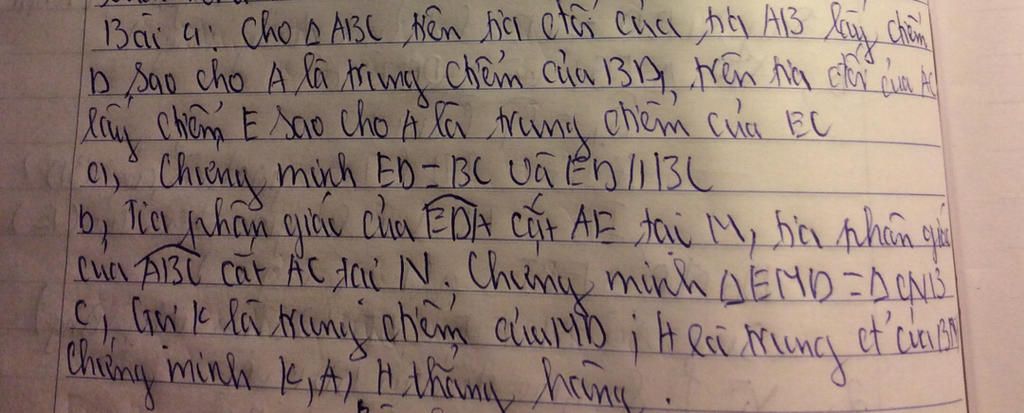 Bài 4: Cho △ABC trên tia đối của tia AB lấy điểm
D sao cho A là trung điểm của BD, trên tia đối của AC
lấy điểm E sao cho A là trung điểm của EC
a, Chứng minh ED = BC và ED // BC
b, Tia phân giác của EDA cắt AE tại M, tia phân giác
của ABC cắt AC tại N. Chứng minh △EMD = △CNB
c, Gọi K là trung điểm của MD ; H là trung đ' của BN
Chứng minh K, A, H thẳng hàng.